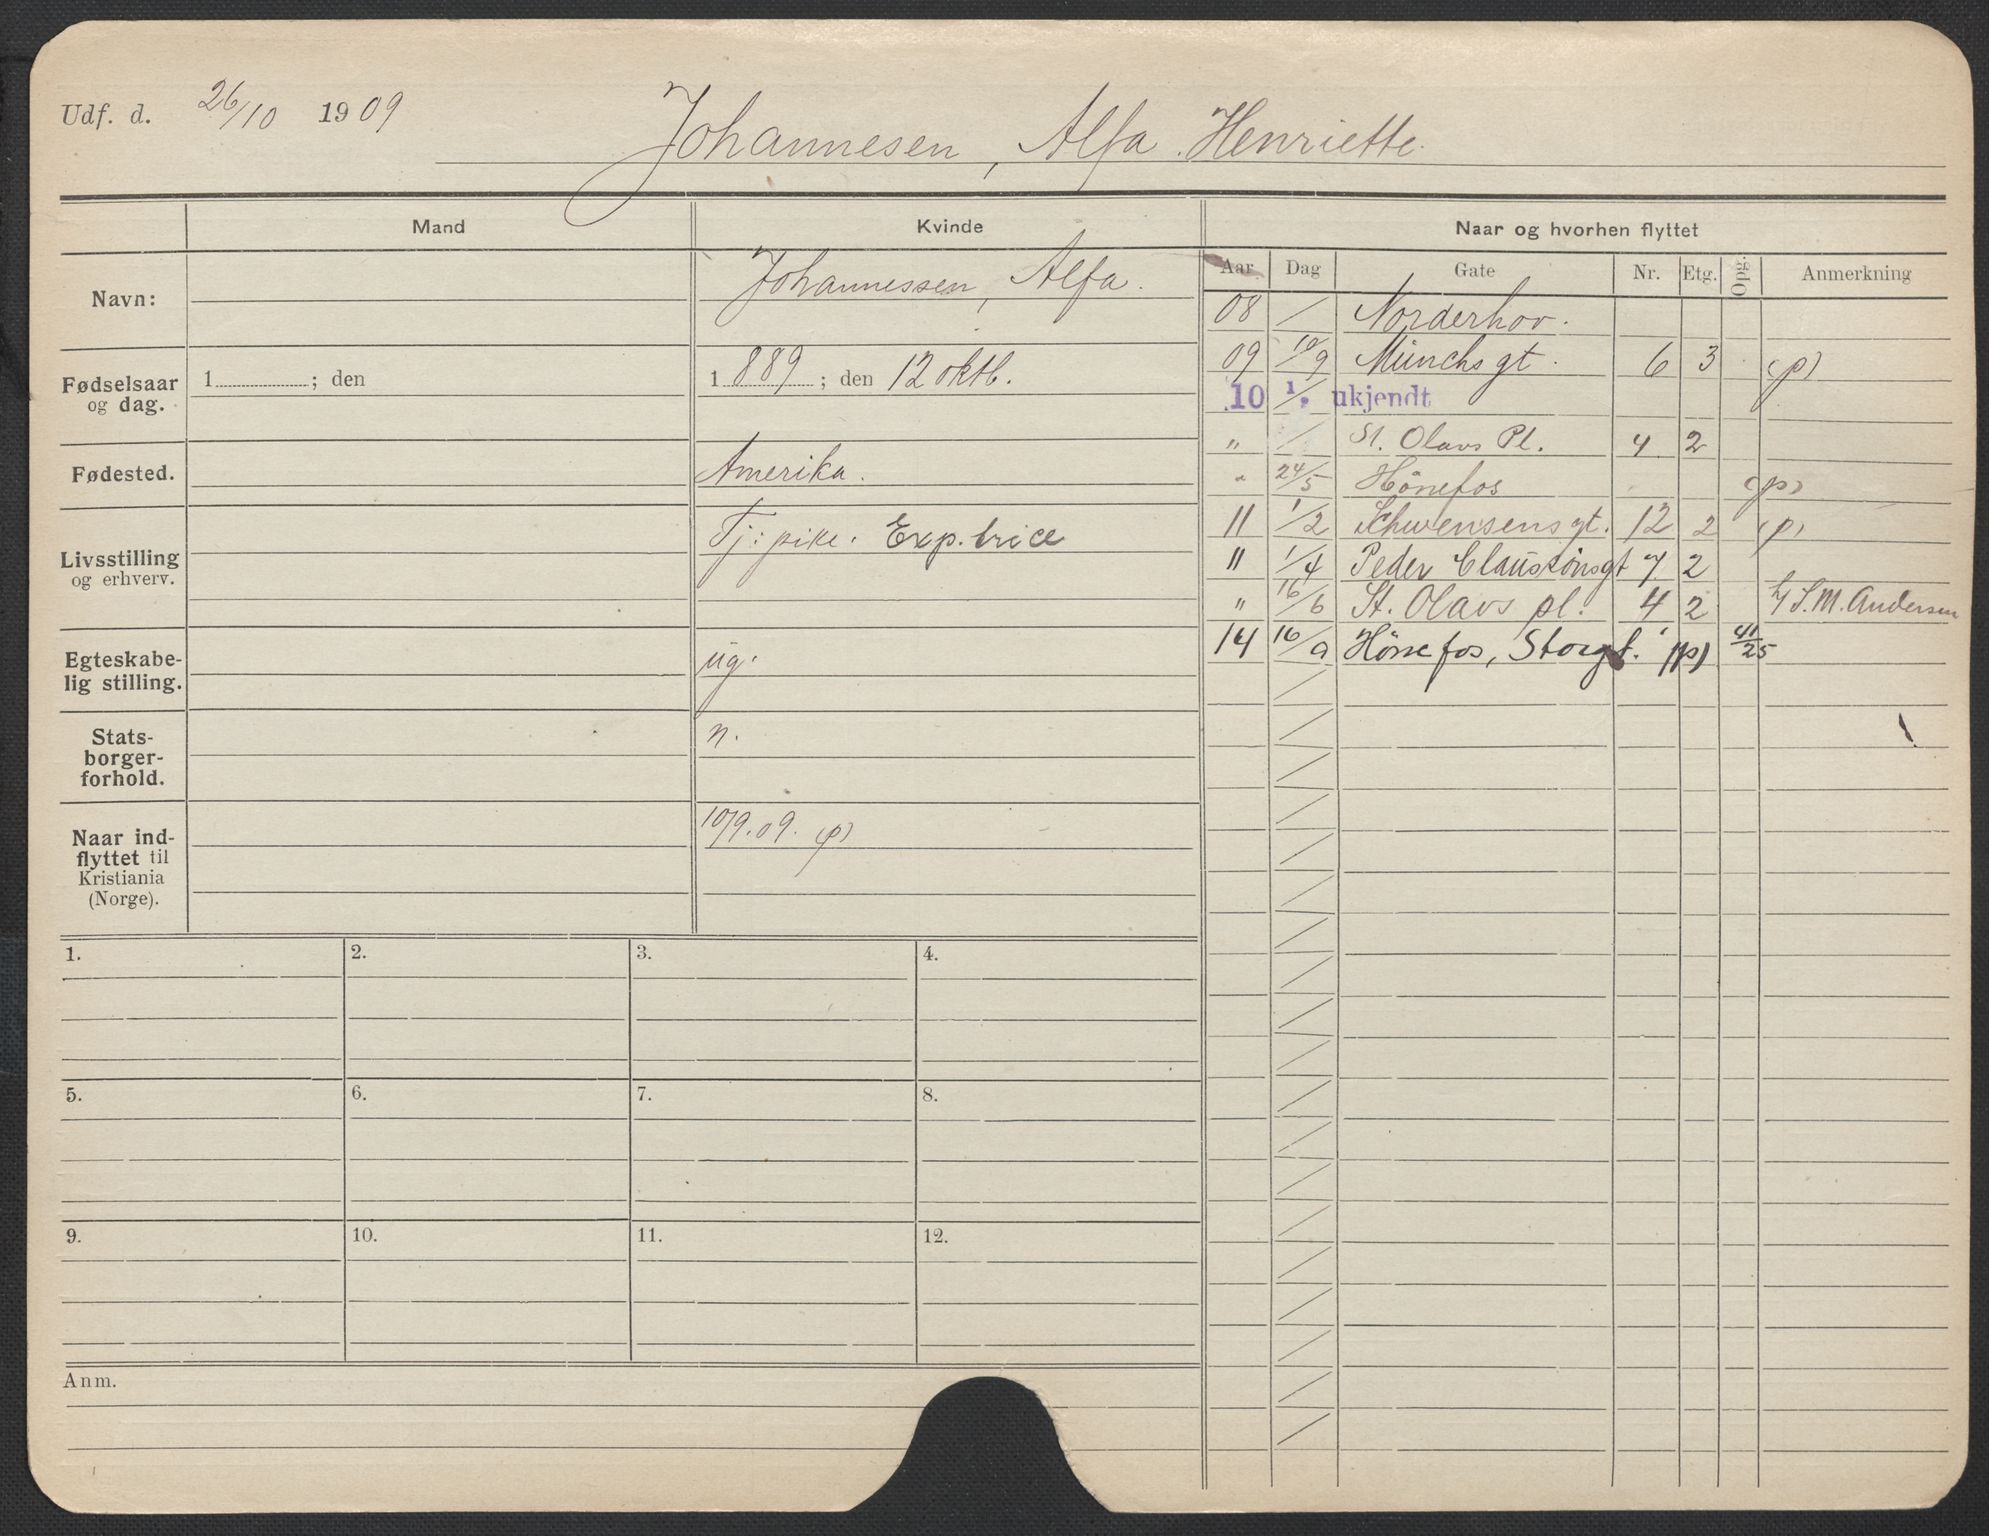 Udf. d. 26/10 1909
Johannesen, Alfa Henriette.
Mand Kvinde Naar og hvorhen flyttet
Aar. Dag Gate Nr. Etg. Opg. Anmerkning
Navn: Johannessen, Alfa.
Fødselsaar og dag. 1 ; den 1889 ; den 12 oktb.
Fødested. Amerika.
Livsstilling og erhverv. Tj: pike. Exp.trice
Egteskabe-
lig stilling. ug.
Stats-
borger-
forhold. n.
Naar ind-
flyttet til
Kristiania
(Norge). 10/9.09. (p)
08 / Norderhov.
09 10/9 Münchsgt. 6 3 (p)
10 1/2 ukjendt
" / St. Olavs Pl. 4 2
" 24/5 Hönefos (p)
11 1/2 Schwensensgt. 12 2 (p)
11 1/4 Peder Claussönsgt 7 2
" 16/6 St. Olavs pl. 4 2 h/ S. M. Andersen
14 16/9 Hönefos, Storgt. (p) 41/25
1. 2. 3. 4.
5. 6. 7. 8.
9. 10. 11. 12.
Anm.